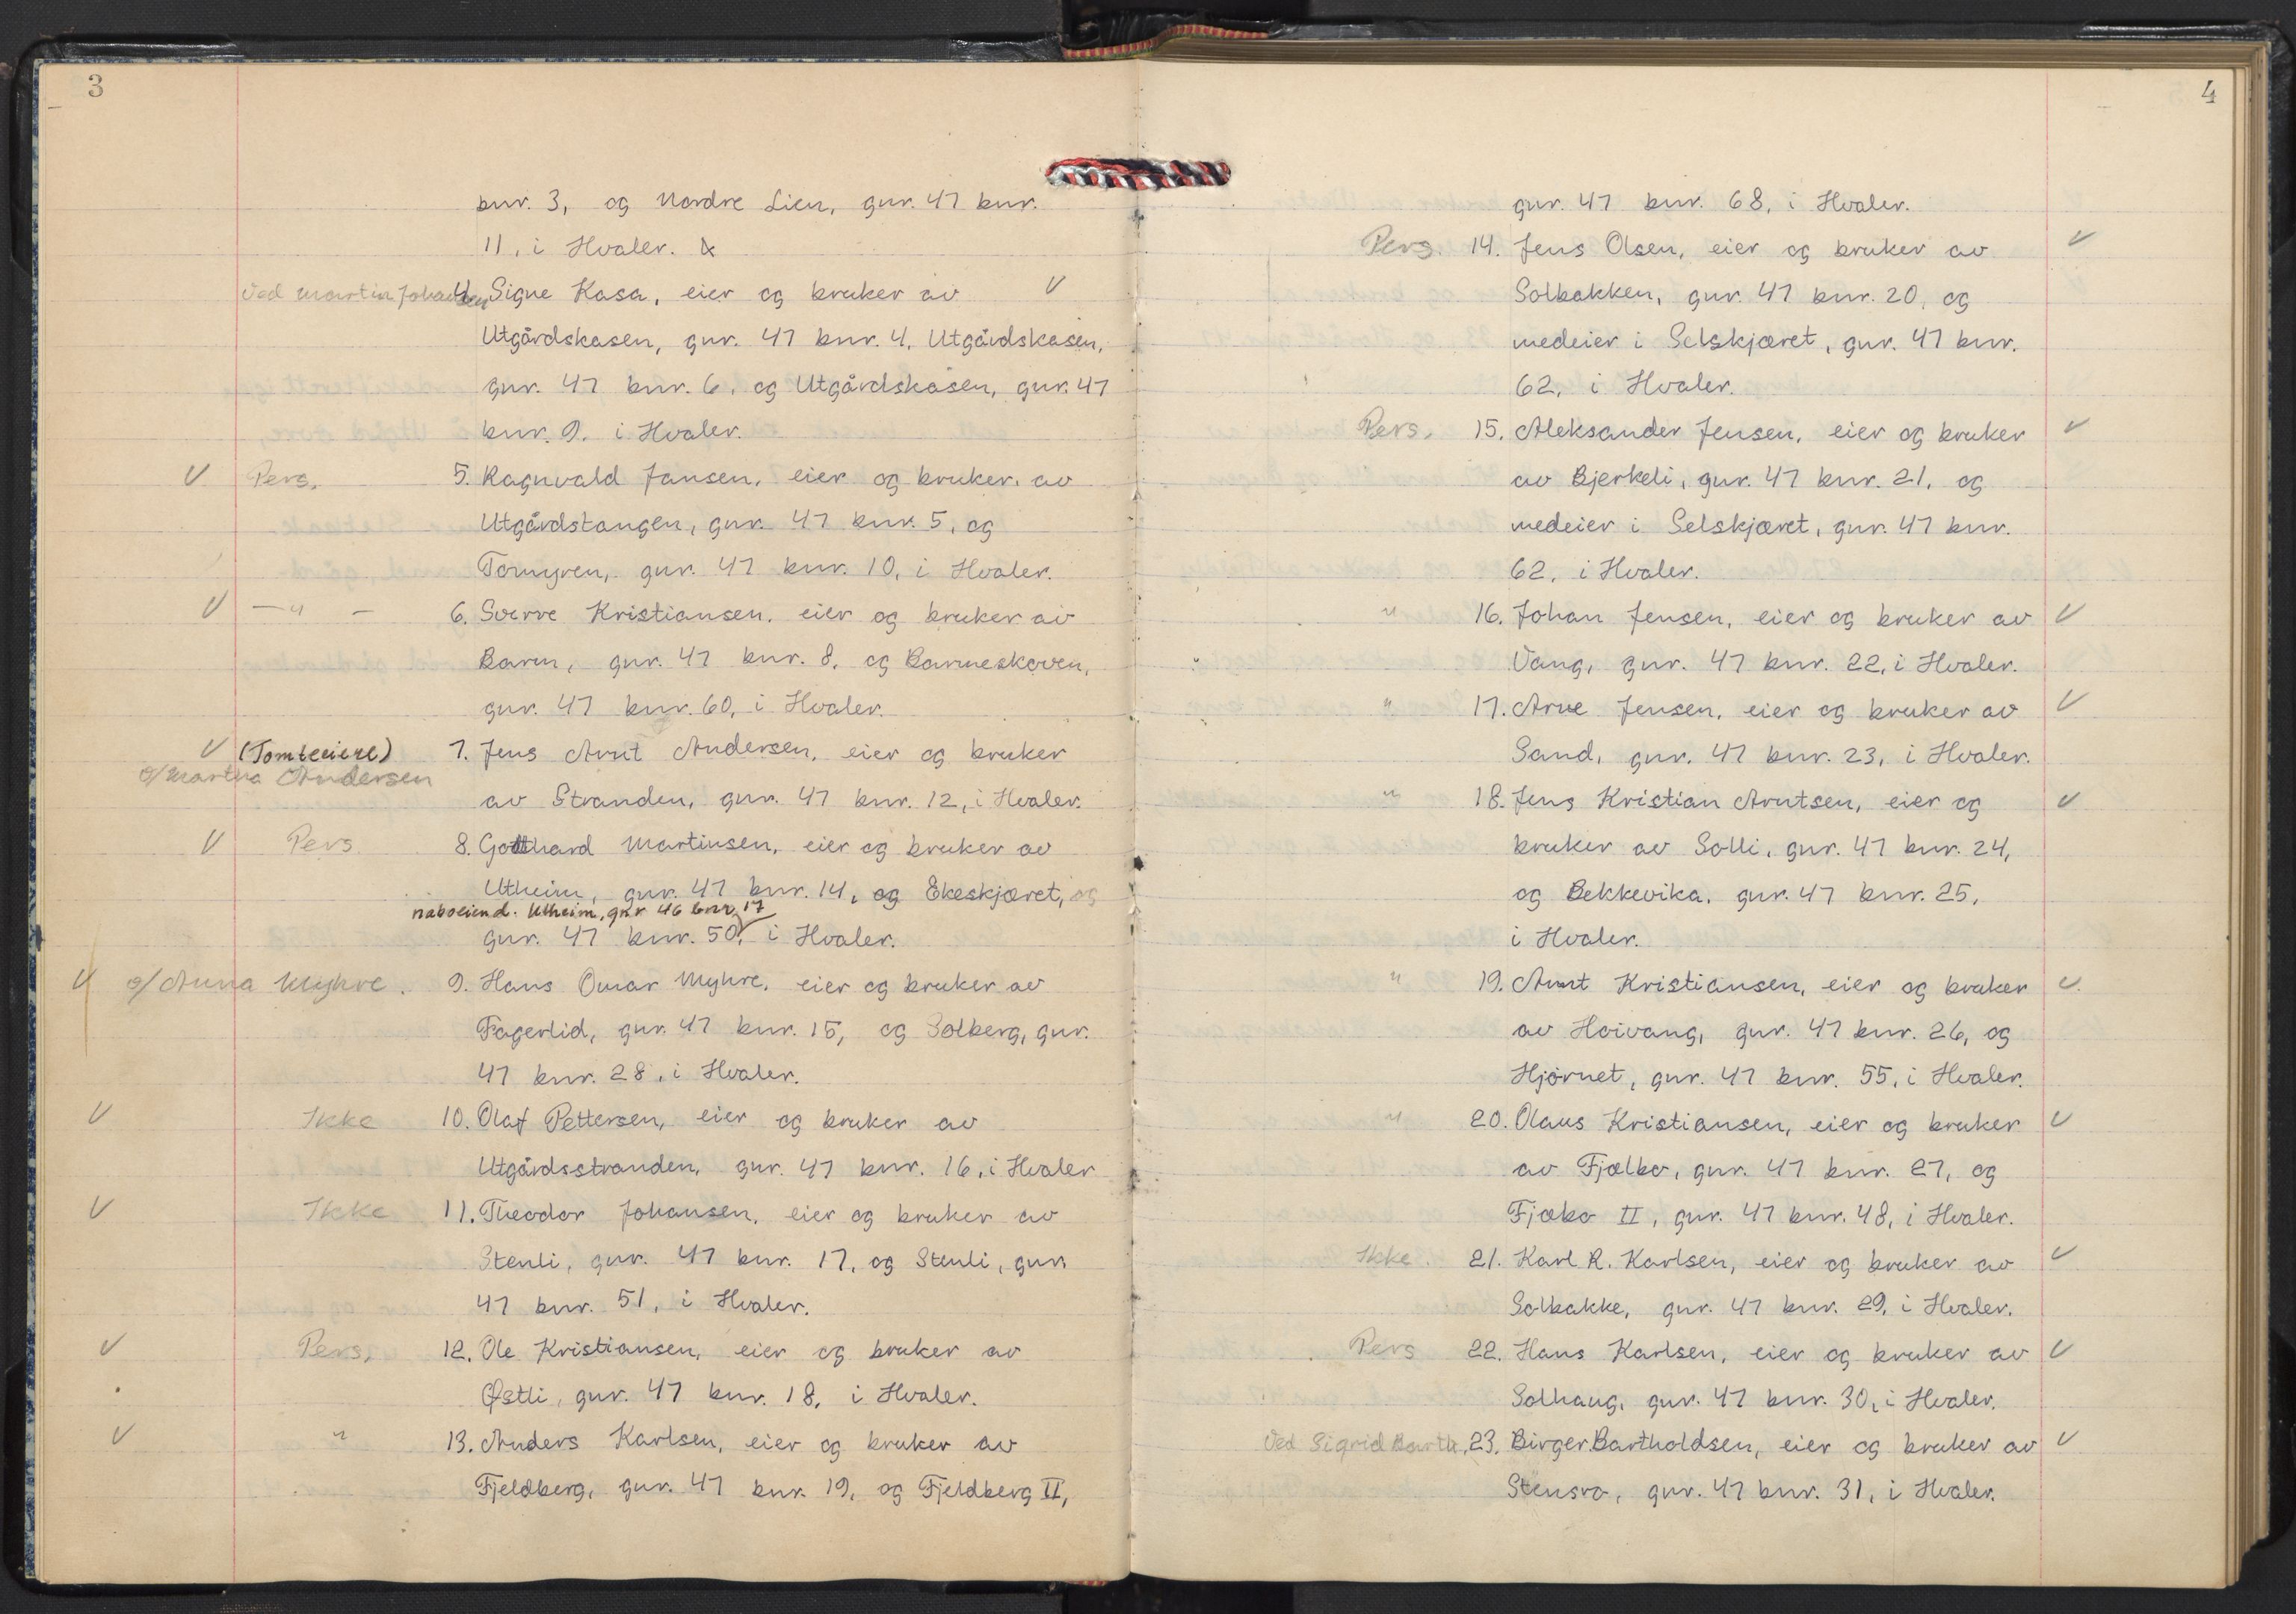 3
bnr. 3, og Nordre Lien, gnr. 47 bnr.
11, i Hvaler.
Ved Martin Johansen 4. Signe Kasa, eier og bruker av V
Utgårdskasen, gnr. 47 bnr. 4, Utgårdskasen,
gnr. 47 bnr. 6, og Utgårdskasen, gnr. 47
bnr. 9, i Hvaler.
V Pers. 5. Ragnvald Jansen, eier og bruker av
Utgårdstangen, gnr. 47 bnr. 5, og
Tormyren, gnr. 47 bnr. 10, i Hvaler.
V — " — 6. Sverre Kristiansen, eier og bruker av
Barm, gnr. 47 bnr. 8, og Barmeskoven,
gnr. 47 bnr. 60, i Hvaler.
V (Tomteeiere) 7. Jens Arnt Andersen, eier og bruker
v/ Martha Andersen
av Stranden, gnr. 47 bnr. 12, i Hvaler.
V Pers. 8. Gotthard Martinsen, eier og bruker av
Utheim, gnr. 47 bnr. 14, og Ekeskjæret, og
naboeiend. Utheim, gnr 46 bnr 17
gnr. 47 bnr. 50, i Hvaler.
V v/ Anna Myhre. 9. Hans Omar Myhre, eier og bruker av
Fagerlid, gnr. 47 bnr. 15, og Solberg, gnr.
47 bnr. 28, i Hvaler.
V Ikke 10. Olaf Pettersen, eier og bruker av
Utgårdsstranden, gnr. 47 bnr. 16, i Hvaler
V Ikke 11. Theodor Johansen, eier og bruker av
Stenli, gnr. 47 bnr. 17, og Stenli, gnr.
47 bnr. 51, i Hvaler.
V Pers. 12. Ole Kristiansen, eier og bruker av
Østli, gnr. 47 bnr. 18, i Hvaler.
V " 13. Anders Karlsen, eier og bruker av
Fjeldberg, gnr. 47 bnr. 19, og Fjeldberg II,
4
gnr. 47 bnr. 68, i Hvaler.
Pers. 14. Jens Olsen, eier og bruker av V
Solbakken, gnr. 47 bnr. 20, og
medeier i Selskjæret, gnr. 47 bnr.
62, i Hvaler.
Pers. 15. Aleksander Jensen, eier og bruker V
av Bjerkeli, gnr. 47 bnr. 21, og
medeier i Selskjæret, gnr. 47 bnr.
62, i Hvaler.
" 16. Johan Jensen, eier og bruker av V
Vang, gnr. 47 bnr. 22, i Hvaler.
" 17. Arne Jensen, eier og bruker av V
Sand, gnr. 47 bnr. 23, i Hvaler.
" 18. Jens Kristian Arntsen, eier og V
bruker av Solli, gnr. 47 bnr. 24,
og Bekkevika, gnr. 47 bnr. 25,
i Hvaler.
" 19. Arnt Kristiansen, eier og bruker V
av Hoivang, gnr. 47 bnr. 26, og
Hjørnet, gnr. 47 bnr. 55, i Hvaler.
" 20. Olaus Kristiansen, eier og bruker V
av Fjælbo, gnr. 47 bnr. 27, og
Fjæbo II, gnr. 47 bnr. 48, i Hvaler.
Ikke. 21. Karl R. Karlsen, eier og bruker av V
Solbakke, gnr. 47 bnr. 29, i Hvaler.
Pers 22. Hans Karlsen, eier og bruker av V
Solhaug, gnr. 47 bnr. 30, i Hvaler.
Ved Sigrid Barth. 23. Birger Bartholdsen, eier og bruker av V
Stensro, gnr. 47 bnr. 31, i Hvaler.